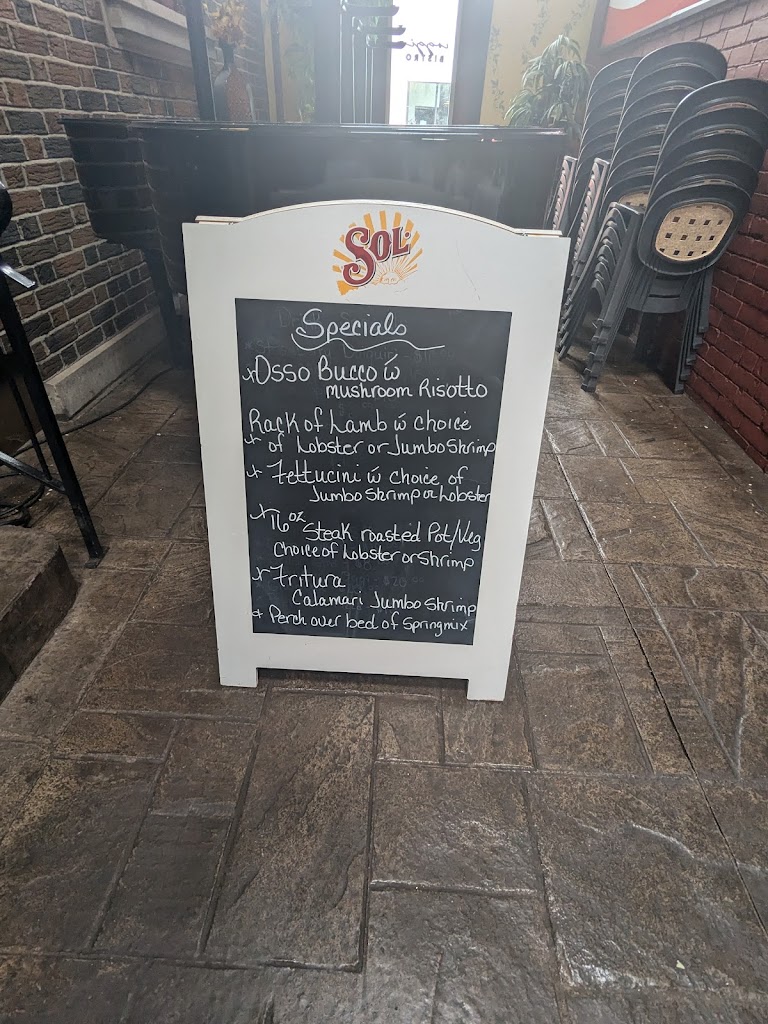 BISTRO
SOL
Specials
Osso Bucco w̄
mushroom Risotto
Rack of Lamb w̄ choice
of Lobster or Jumbo Shrimp
Fettucini w̄ choice of
Jumbo Shrimp or Lobster
16oz Steak roasted Pot/Veg
choice of Lobster or Shrimp
Fritura
Calamari Jumbo Shrimp
Perch over bed of Springmix